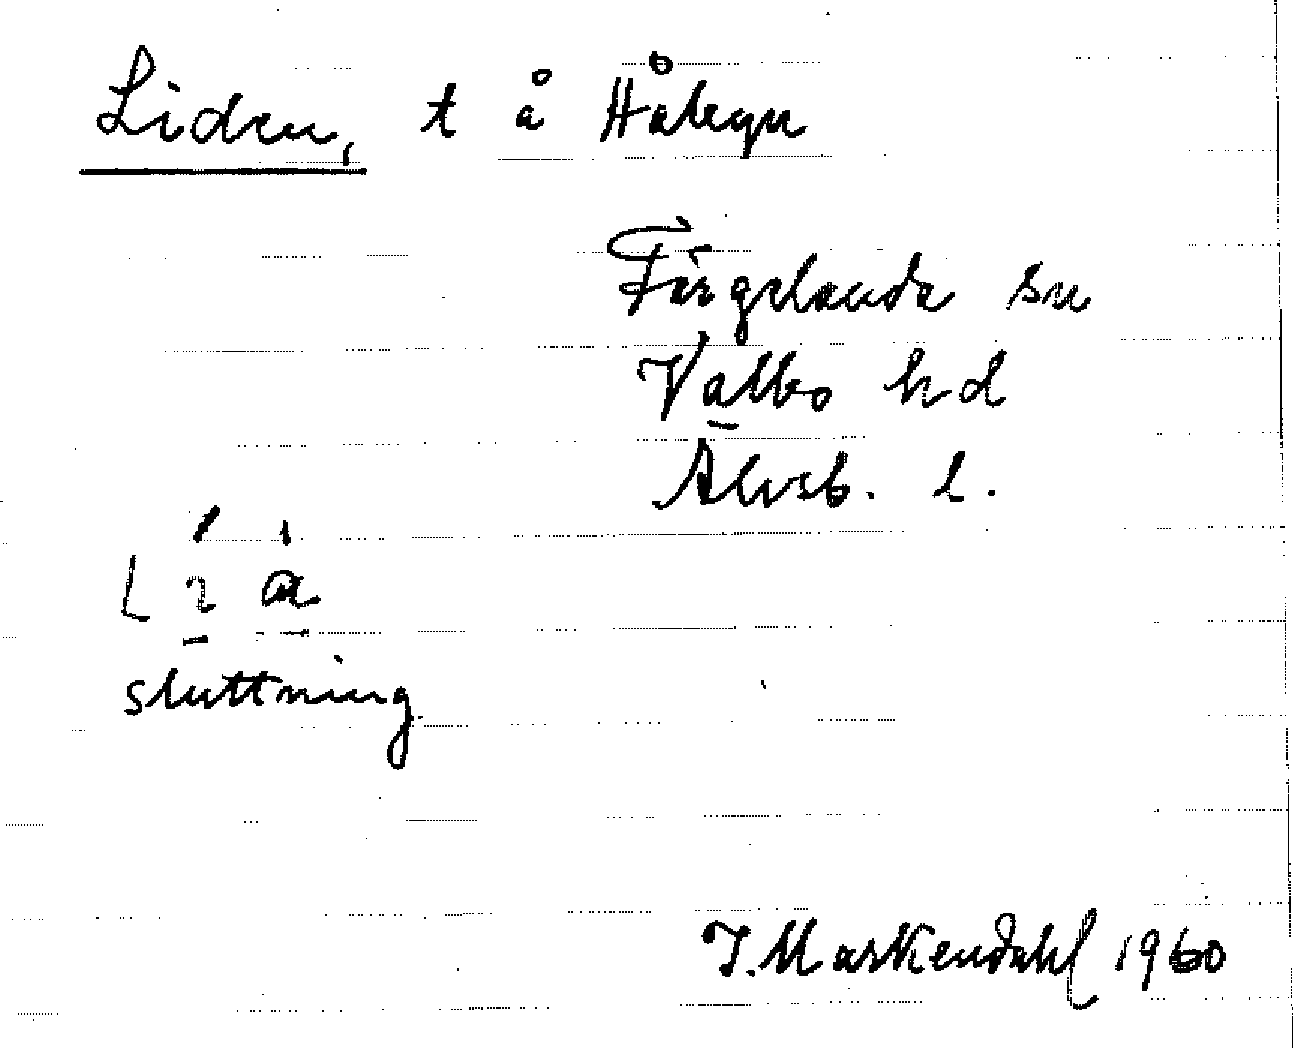 Liden, t å Håbyn
Färgelanda sn
Valbo hd
Älvsb. l.
sluttning
J. Markendahl 1960